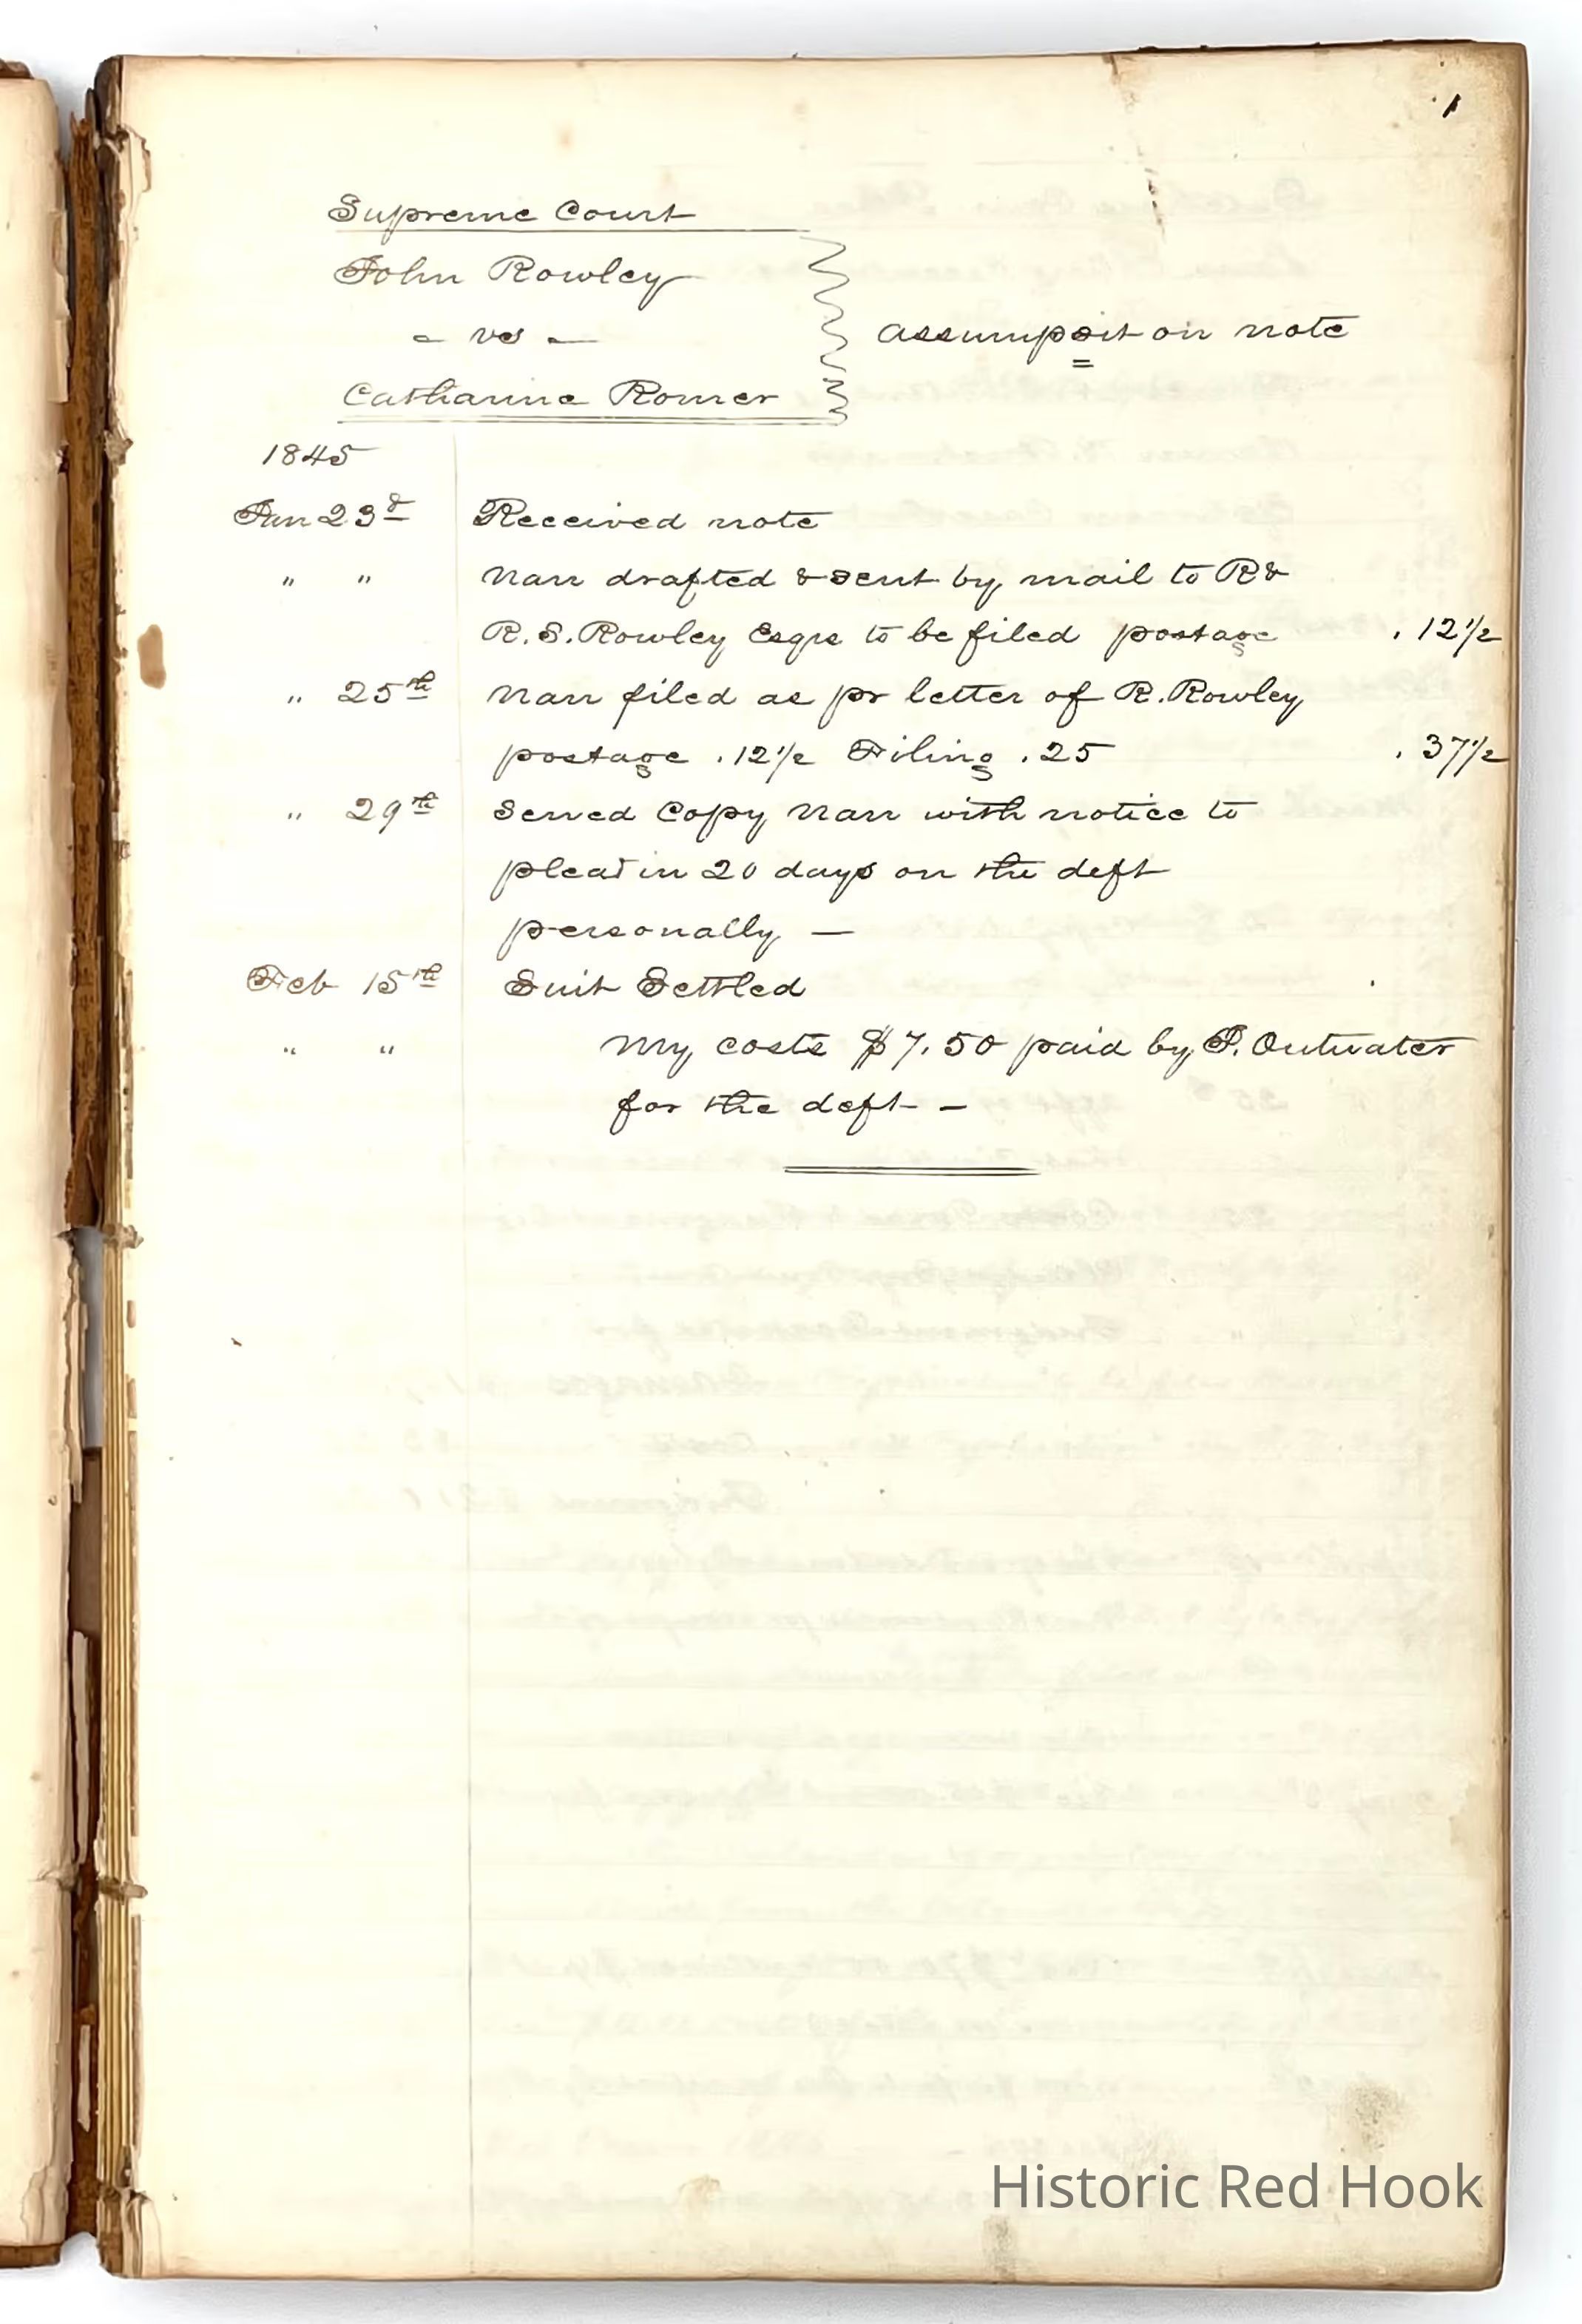 1
Supreme Court
John Rowley
- vs -
Catharine Romer
assumpsit on note
1845
Jan 23d Received note
" " Narr drafted & sent by mail to R &
R. S. Rowley Esqrs to be filed postage . 12½
" 25th Narr filed as pr letter of R. Rowley
postage . 12½ Filing . 25 . 37½
" 29th Served Copy Narr with notice to
plead in 20 days on the deft
personally —
Feb 15th Suit Settled
" " My costs $7.50 paid by P. Outwater
for the deft -
Historic Red Hook